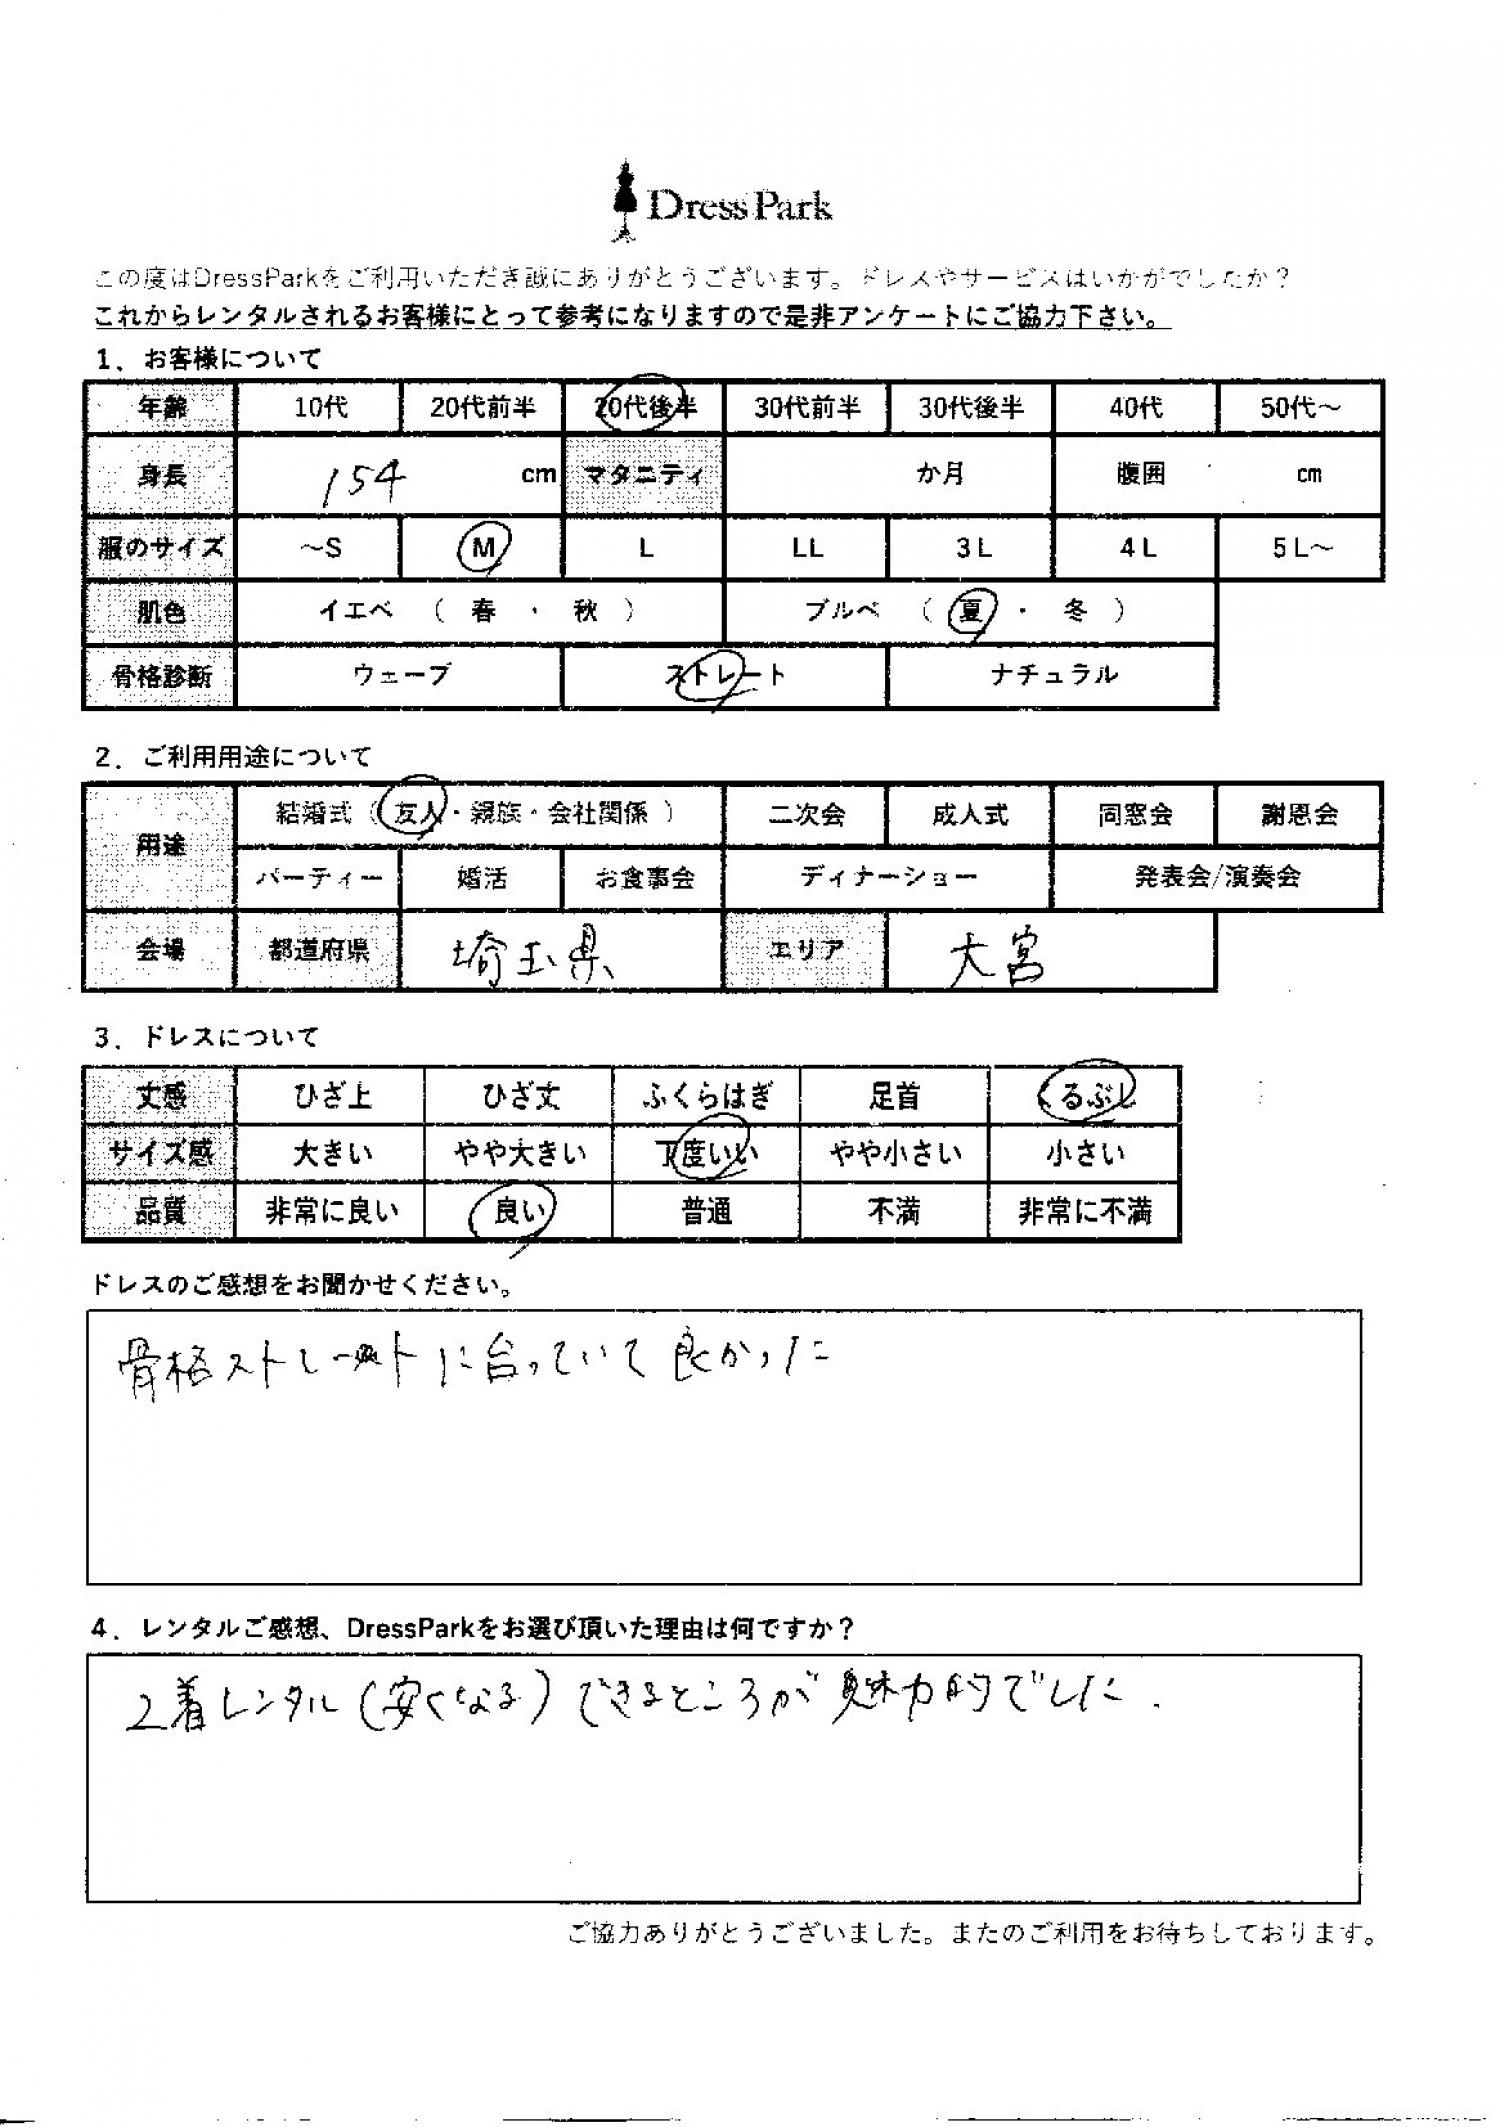 Dress Park
この度はDressParkをご利用いただき誠にありがとうございます。ドレスやサービスはいかがでしたか？
これからレンタルされるお客様にとって参考になりますので是非アンケートにご協力下さい。
1．お客様について
年齢 10代 20代前半 20代後半 30代前半 30代後半 40代 50代～
身長 154 cm マタニティ か月 腹囲 cm
服のサイズ ～S M L LL 3L 4L 5L～
肌色 イエベ （ 春 ・ 秋 ） ブルベ （ 夏 ・ 冬 ）
骨格診断 ウェーブ ストレート ナチュラル
2．ご利用用途について
用途 結婚式（ 友人・親族・会社関係 ） 二次会 成人式 同窓会 謝恩会
パーティー 婚活 お食事会 ディナーショー 発表会/演奏会
会場 都道府県 埼玉県 エリア 大宮
3．ドレスについて
丈感 ひざ上 ひざ丈 ふくらはぎ 足首 くるぶし
サイズ感 大きい やや大きい 丁度いい やや小さい 小さい
品質 非常に良い 良い 普通 不満 非常に不満
ドレスのご感想をお聞かせください。
骨格ストレートに合っていて良かった
4．レンタルご感想、DressParkをお選び頂いた理由は何ですか？
2着レンタル(安くなる)できるところが魅力的でした.
ご協力ありがとうございました。またのご利用をお待ちしております。